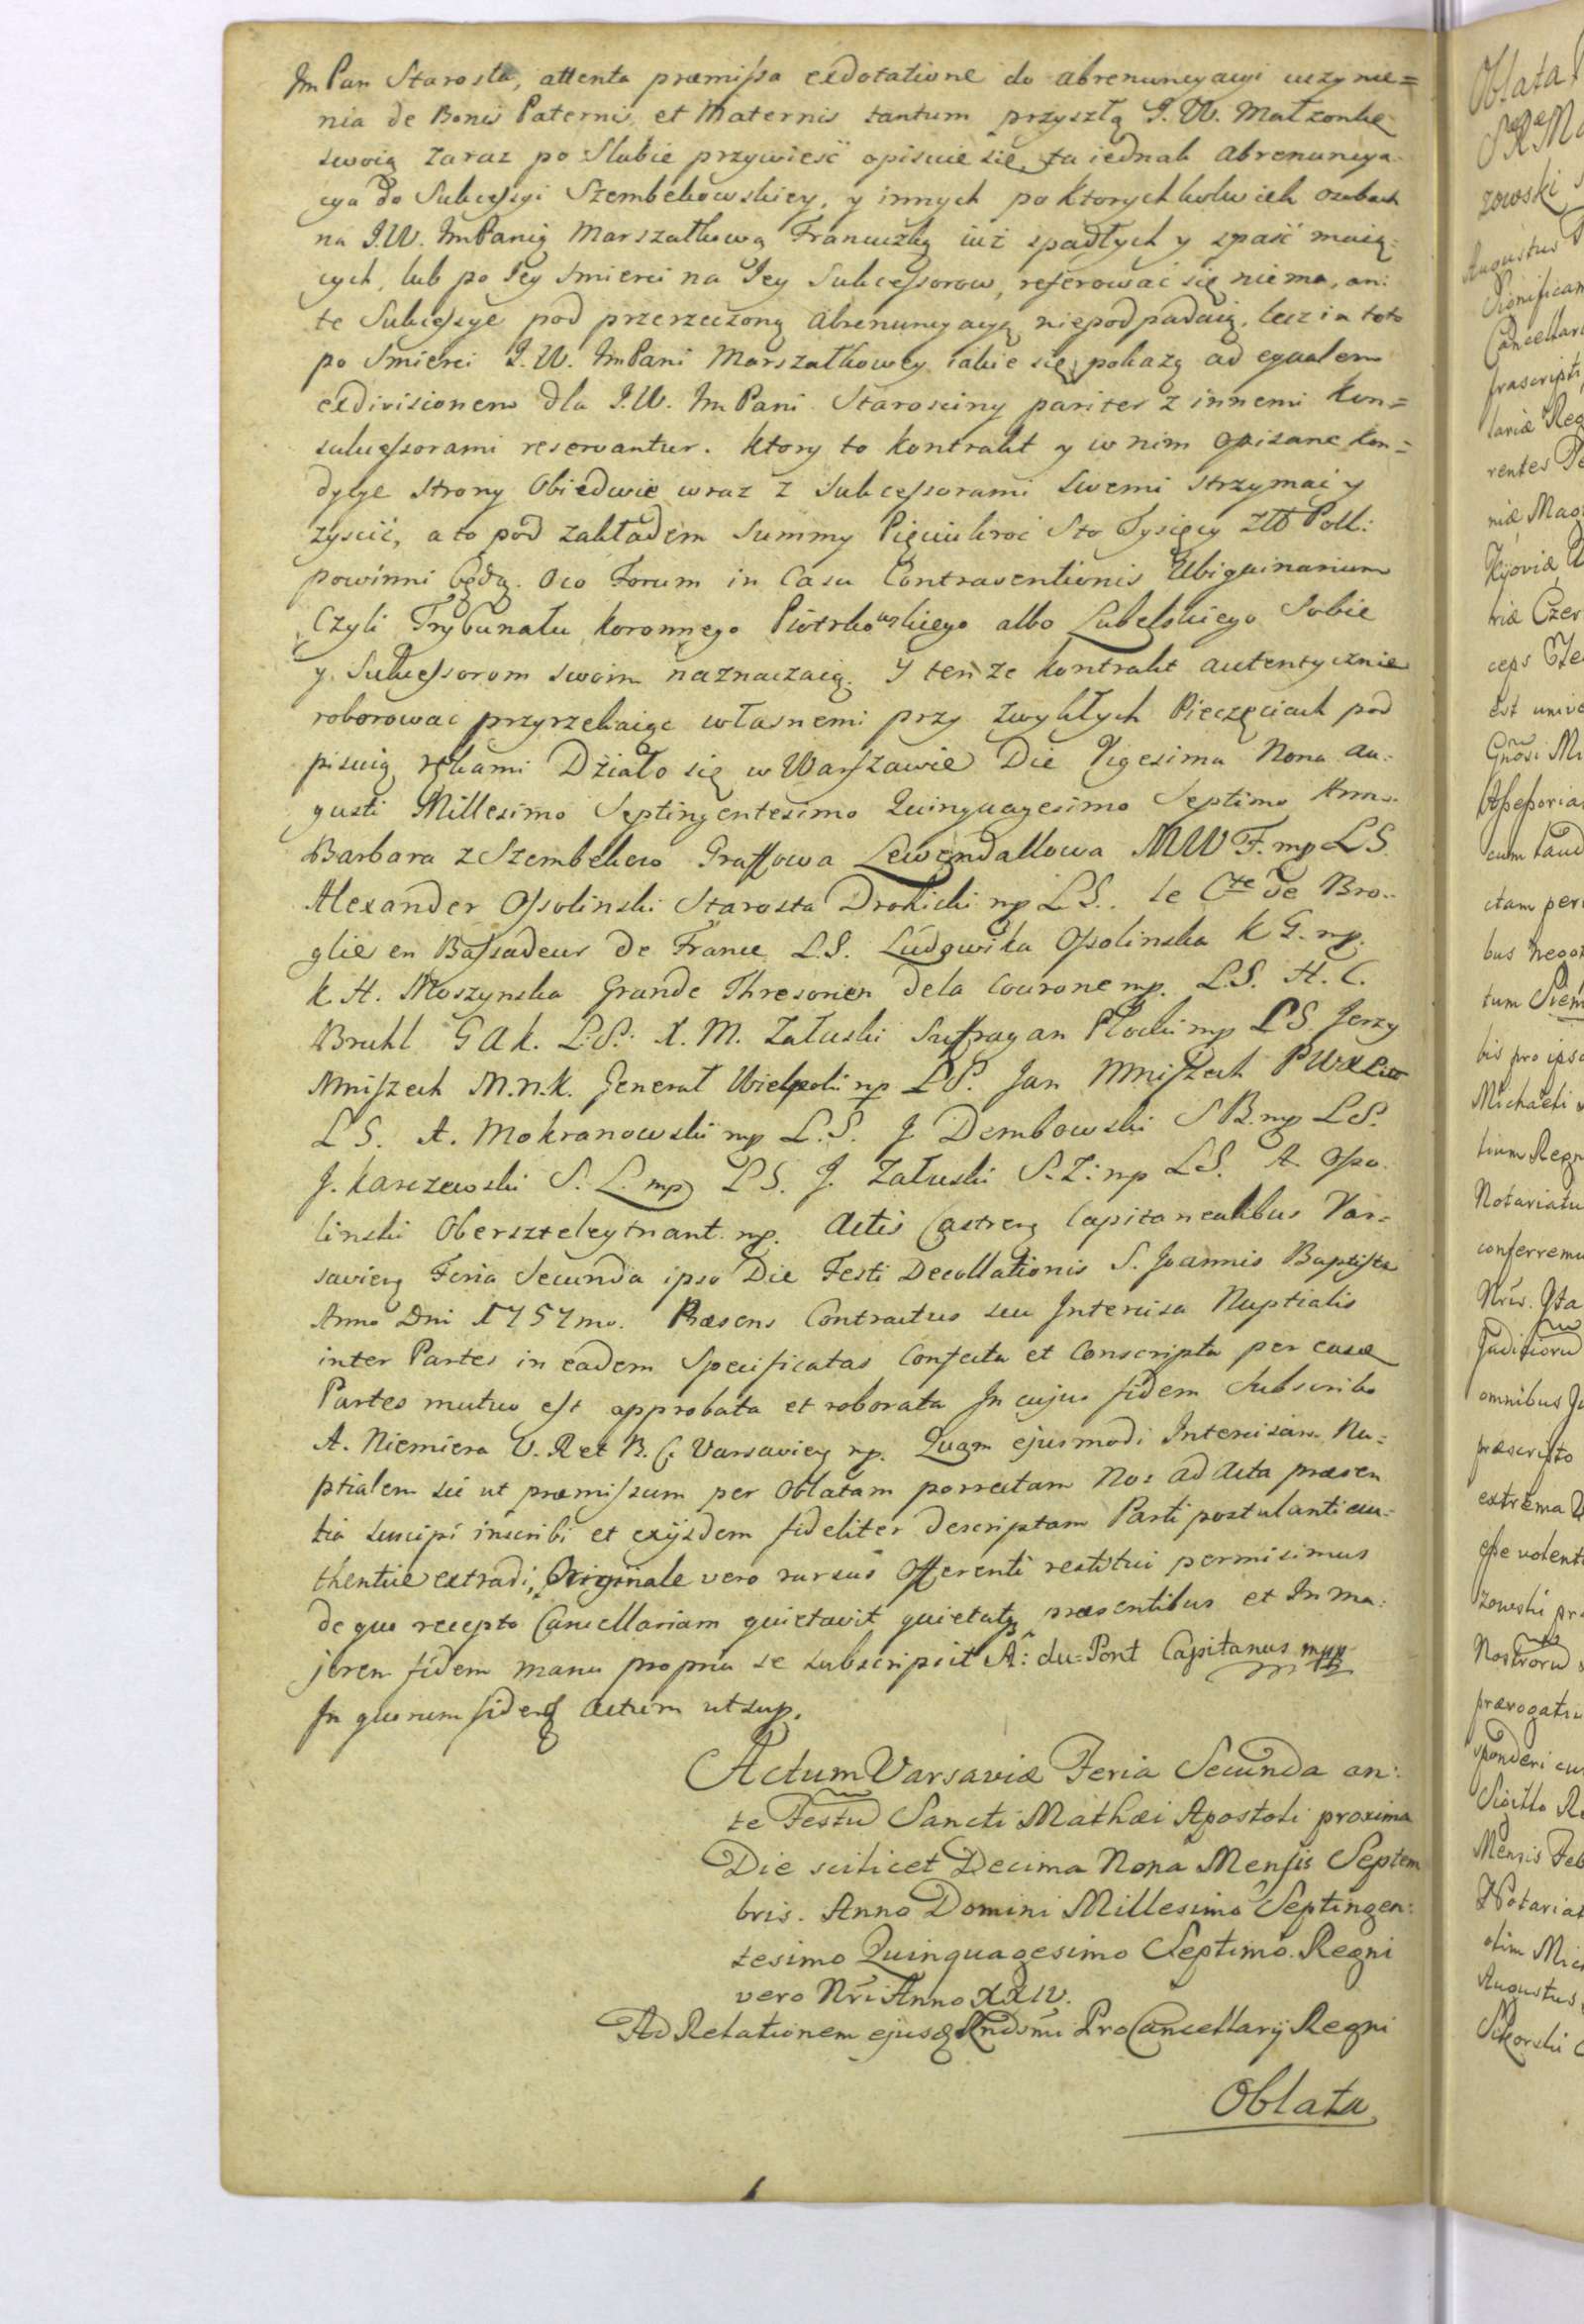 Im Pan Starosta, attenta præmissa exdotatione do abrenuncyacyi uczynie=
nia de Bonis Paternis, et Maternis tantum przyszłą J. W. Małzonkę
swoią zaraz po Slubie przywieść opisuie się, ta iednak abrenuncya
cya do Sukcessyi Szembekowskiey, y innych po ktorychkolwiek osobach
na J.W. ImPanią Marszałkową Francuzką iuż spadłych y spaść maią=
cych, lub po Jey Smierci na Jey Sukcessorow, referować się niema, ani
te Sukcessye pod przerzeczoną abrenuncyacyą niepodpadaią, lecz in toto
po Smierci J.W. ImPani Marszałkowey iakie się pokażą ad equalem
exdivisionem dla J.W. Im Pani Starosciny pariter z innemi kon=
sukcessorami reservantur. Ktory to kontrakt y w nim opisane kon=
dycye strony Obiedwie wraz z Sukcessorami swemi strzymać y
zyscić, a to pod zakładem Summy Pięciukroć Sto Tysięcy Złł Poll:
powinni będą. Oco Forum in Casu Contraventionis Ubiquinarium
Czyli Trybunału koronnego Piotrkowskiego albo Lubelskiego Sobie
y Sukcessorom swoim naznaczaią. Y tenże kontrakt autentycznie
roborować przyrzekaiąc własnemi przy zwykłych Pieczęciach pod
pisuią rękami Działo się w Warszawie Die Vigesima Nona Au=
gusti Millesimo Septingentesimo Quinquagesimo Septimo Anno.
Barbara z Szembekow Graffowa Lewendallowa MWF. mp LS.
Alexander Ossolinski Starosta Drohicki mp LS. le Cte de Bro=
glie en Bassadeur de France L.S. Ludgwika Ossolinska K G. mp.
k. H. Moszynska Grande Thresorien dela Courone mp. LS. H. C.
Bruhl G A k. L:S:. X. M. Załuski Suffragan Płocki mp LS Jerzy
Mniszech M.n.k. Generał Wielkpolki mp LS. Jan Mniszech PWXLitt
LS. A. Mokranowski mp L.S. J Dembowski S B. mp LS.
J. Karczewski S. L. mp LS. J. Załuski S. Z: mp LS. A. Osso=
linski Oberszteleytnant. mp. Actis Castren Capitanealibus Var=
savien Feria Secunda ipso Die Festi Decollationis S. Joannis Baptista
Anno Dni 1757mo. Præsens Contractus seu Intercisa Nuptialis
inter Partes in eadem Specificatas Confecta et Conscripta per easd
Partes mutuo est approbata et roborata In cujus fidem Subscribo
A. Niemiera V. R et B. C. Varsavien mp. Quam ejusmodi Intercisam Nu=
ptialem sic ut præmissum per Oblatam porrectam Nos ad Acta præsen
tia suscipi inscribi et exijsdem fideliter descriptam Parti postulanti au=
thentice extradi, Originale vero rursus Offerenti restitui permisimus
de quo recepto Cancellariam quietavit quietatq præsentibus et In ma=
jorem fidem manu propria se subscripsit A: du=Pont Capitanus mpp
In quorum fidem Actum ut sup.
Actum Varsaviæ Feria Secunda an=
te Festū Sancti Mathæi Apostoli proxima
Die scilicet Decima Nona Mensis Septem
bris. Anno Domini Millesimo Septingen:
tesimo Quinquagesimo Septimo. Regni
vero Nri Anno XXIV.
Ad Relationem ejusd Rndsmi ProCancellarij Regni
Oblata
Oblata
zowski
Augustus
Significam
Cancellari
frascripti
lariæ Reg
rentes
niæ Mag
Kijoviæ
riæ Czer
ceps
est unive
Gnosi
Assessoria
cum laud
ctam per
bus negot
tum
bis pro ipso
Michaeli
tium Regn
Notariatu
conferremu
Nris.
Judiciorū
omnibus
præscripto
extrema
esse volent
zowski pr
Nostrorū
prærogativ
sponderi cu
Sigillo Re
Mensis Feb
Notariat
olim Mic
Augustus
Sikorski